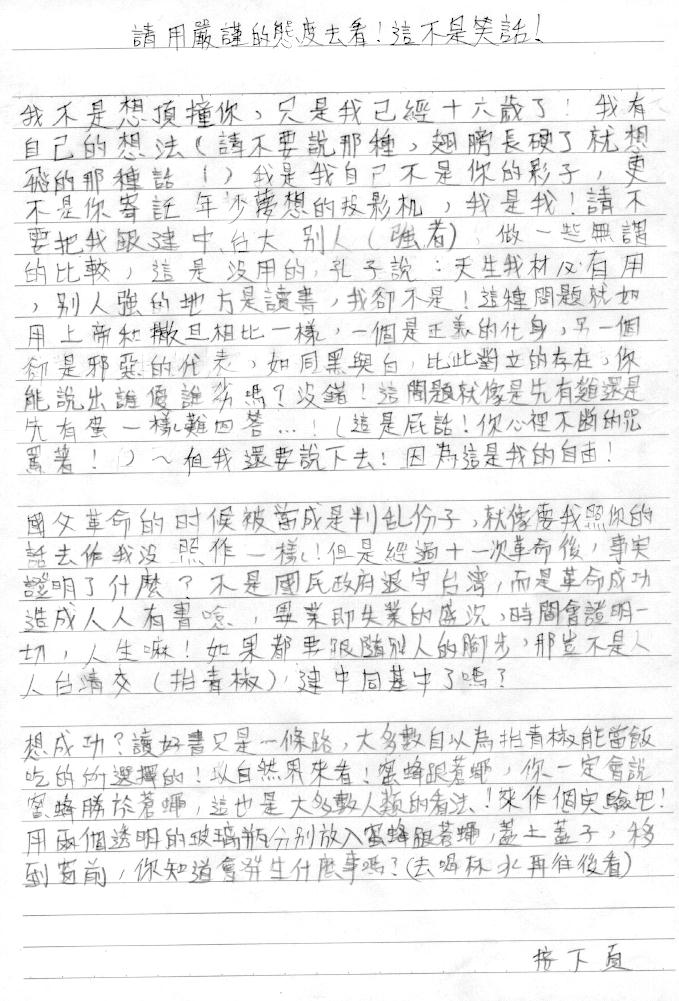 請用嚴謹的態度去看!這不是笑話!
我不是想頂撞你，只是我已經十六歲了!我有
自己的想法(請不要說那種，翅膀長硬了就想
飛的那種話!)我是我自己不是你的影子，更
不是你寄託年少夢想的投影机，我是我!請不
要把我跟建中、台大、別人(強者)，做一些無謂
的比較，這是沒用的，孔子說:天生我材必有用
，別人強的地方是讀書，我卻不是!這種問題就如
用上帝和撒旦相比一樣，一個是正義的化身，另一個
卻是邪惡的代表，如同黑與白，比此對立的存在，你
能說出誰優誰劣嗎?沒錯!這問題就像是先有雞還是
先有蛋一樣難回答…!(這是屁話!你心裡不斷的咒
罵著!)~但我還要說下去!因為這是我的自由!
國父革命的时候被當成是判乱份子，就像要我照你的
話去作我沒 照作一樣!但是經過十一次革命後，事实
證明了什麼?不是國民政府退守台灣，而是革命成功
造成人人有書唸，畢業即失業的盛況，時間會證明一
切，人生嘛!如果都要跟隨別人的腳步，那豈不是人
人台清交(抬青椒)，建中同基中了嗎?
想成功?讀好書只是一條路，大多數自以為抬青椒能當飯
吃的所選擇的!以自然界來看!蜜蜂跟蒼蠅，你一定會說
蜜蜂勝於蒼蠅，這也是大多數人類的看法!來作個实驗吧!
用兩個透明的玻璃瓶分別放入蜜蜂跟蒼蠅，蓋上蓋子，移
到窗前，你知道會發生什麼事嗎?(去喝杯水再往後看)
接下頁